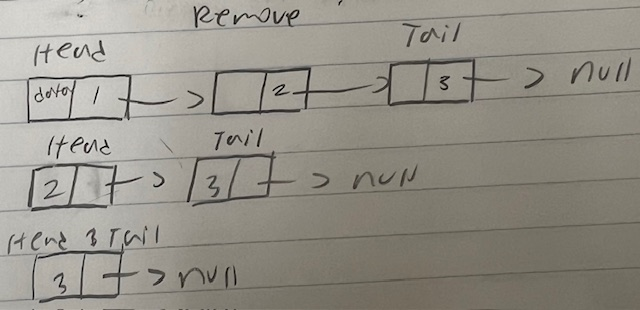 Remove
Head Tail
data 1 2 3 null
Head Tail
2 3 null
Head & Tail
3 null